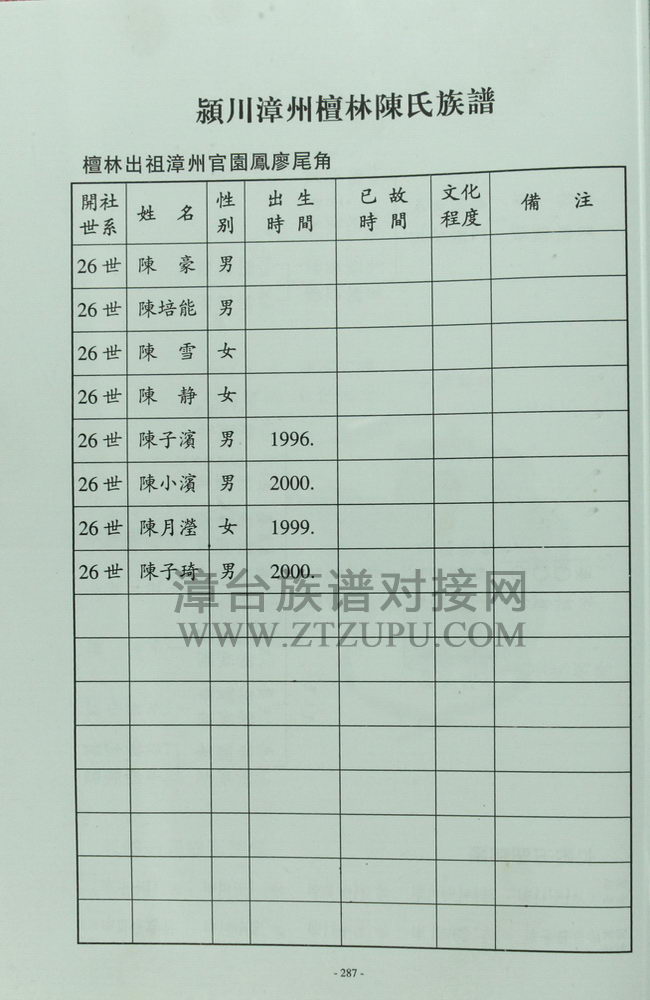 潁川漳州檀林陳氏族譜
檀林出祖漳州官園鳳廖尾角
開社世系 姓 名 性别 出生時間 已故時間 文化程度 備 注
26世 陳 豪 男
26世 陳培能 男
26世 陳 雪 女
26世 陳 静 女
26世 陳子濱 男 1996.
26世 陳小濱 男 2000.
26世 陳月瀅 女 1999.
26世 陳子琦 男 2000.
漳台族谱对接网
WWW.ZTZUPU.COM
- 287 -